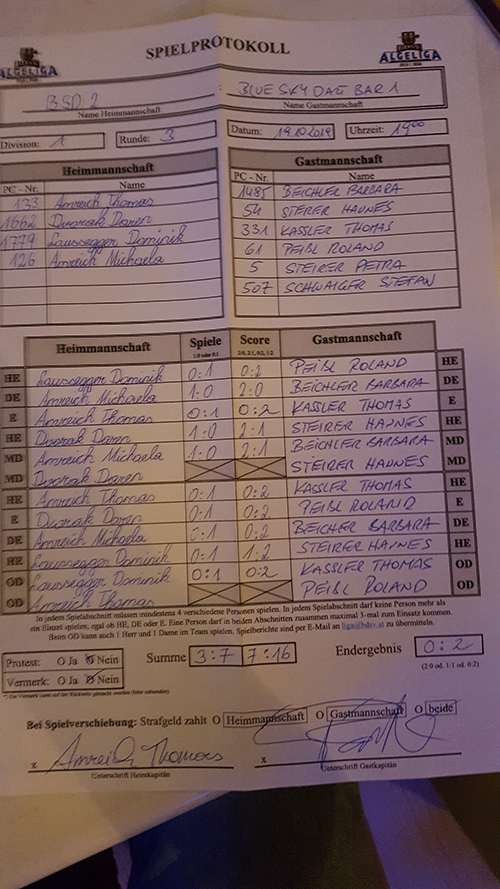 ALGELIGA SPIELPROTOKOLL ALGELIGA
BSD 2 : BLUE SKY DART BAR 1
Name Heimmannschaft Name Gastmannschaft
Division: 1 Runde: 3 Datum: 19.10.2019 Uhrzeit: 1900
Heimmannschaft Gastmannschaft
PC - Nr. Name PC - Nr. Name
133 Amreich Thomas 1485 BEICHLER BARBARA
1662 Dvorak Daren 54 STEIRER HANNES
1779 Laussegger Dominik 331 KASSLER THOMAS
126 Amreich Michaela 61 PEIBL ROLAND
5 STEIRER PETRA
507 SCHWAIGER STEFAN
Heimmannschaft Spiele Score Gastmannschaft
1:0 oder 0:1 2:0, 2:1, 0:2, 1:2
HE Laussegger Dominik 0:1 0:2 PEIBL ROLAND HE
DE Amreich Michaela 1:0 2:0 BEICHLER BARBARA DE
E Amreich Thomas 0:1 0:2 KASSLER THOMAS E
HE Dvorak Daren 1:0 2:1 STEIRER HANNES HE
MD Amreich Michaela 1:0 2:1 BEICHLER BARBARA MD
MD Dvorak Daren STEIRER HANNES MD
HE Amreich Thomas 0:1 0:2 KASSLER THOMAS HE
E Dvorak Daren 0:1 0:2 PEIBL ROLAND E
DE Amreich Michaela 0:1 0:2 BEICHLER BARBARA DE
HE Laussegger Dominik 0:1 1:2 STEIRER HANNES HE
OD Laussegger Dominik 0:1 0:2 KASSLER THOMAS OD
OD Amreich Thomas PEIBL ROLAND OD
In jedem Spielabschnitt müssen mindestens 4 verschiedene Personen spielen. In jedem Spielabschnitt darf keine Person mehr als
ein Einzel spielen, egal ob HE, DE oder E. Eine Person darf in beiden Abschnitten zusammen maximal 3-mal zum Einsatz kommen.
Beim OD kann auch 1 Herr und 1 Dame im Team spielen. Spielberichte sind per E-Mail an liga@bdsv.at zu übermitteln.
Protest: O Ja O Nein Summe 3:7 7:16 Endergebnis 0:2
Vermerk: O Ja O Nein (2:0 od. 1:1 od. 0:2)
Bei Spielverschiebung: Strafgeld zahlt O Heimmannschaft O Gastmannschaft O beide
x Amreich Thomas x
Unterschrift Heimkapitän Unterschrift Gastkapitän